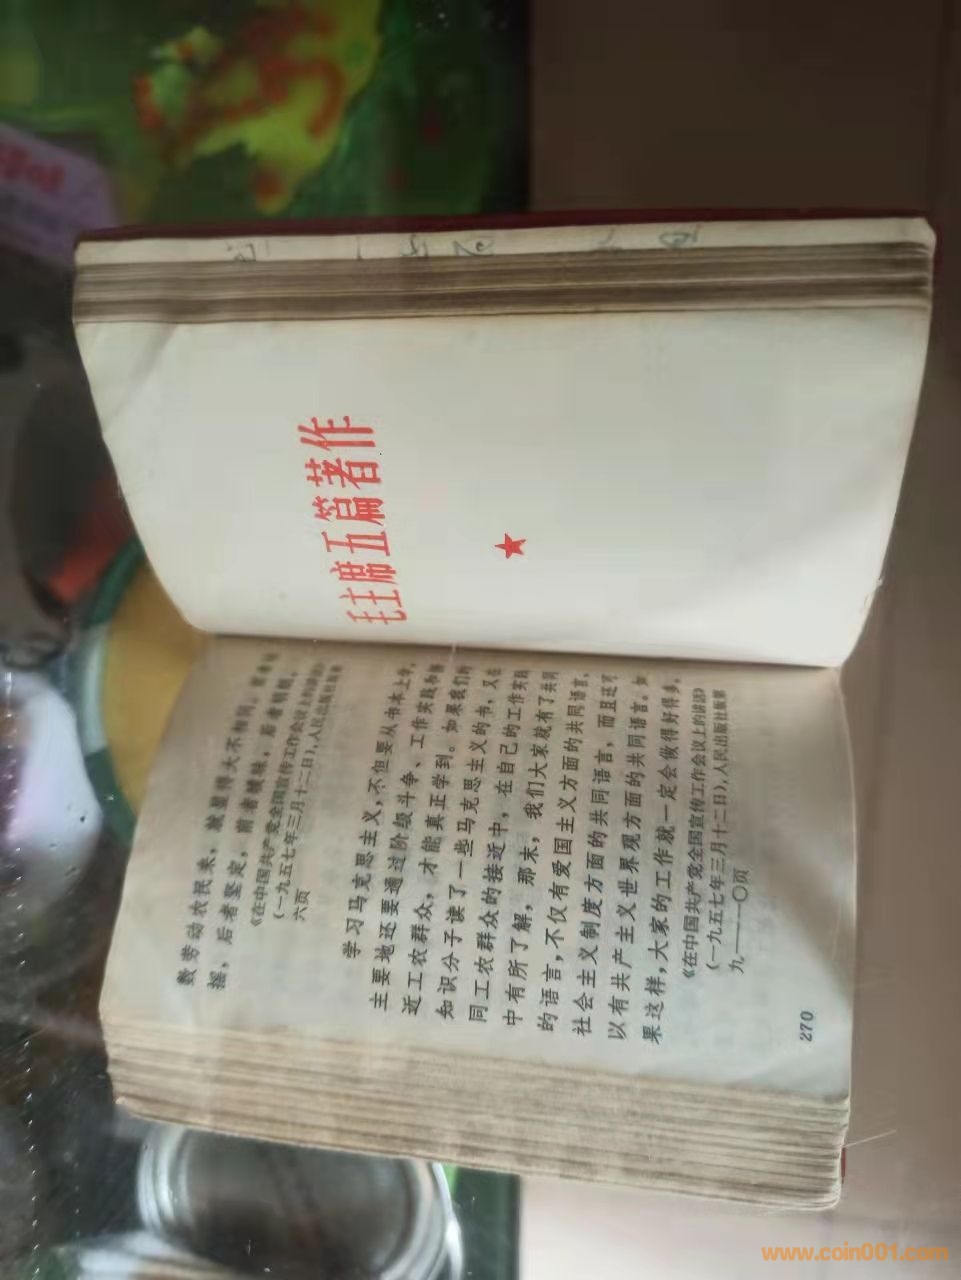 数劳动农民来，就显得大不相同。前者动
摇，后者坚定，前者暧昧，后者明朗。
《在中国共产党全国宣传工作会议上的讲话》
（一九五七年三月十二日），人民出版社版第
六页
学习马克思主义，不但要从书本上学，
主要地还要通过阶级斗争、工作实践和接
近工农群众，才能真正学到。如果我们的
知识分子读了一些马克思主义的书，又在
同工农群众的接近中，在自己的工作实践
中有所了解，那末，我们大家就有了共同
的语言，不仅有爱国主义方面的共同语言、
社会主义制度方面的共同语言，而且还可
以有共产主义世界观方面的共同语言。如
果这样，大家的工作就一定会做得好得多。
《在中国共产党全国宣传工作会议上的讲话》
（一九五七年三月十二日），人民出版社版第
九——一〇页
270
毛主席五篇著作
www.coin001.com